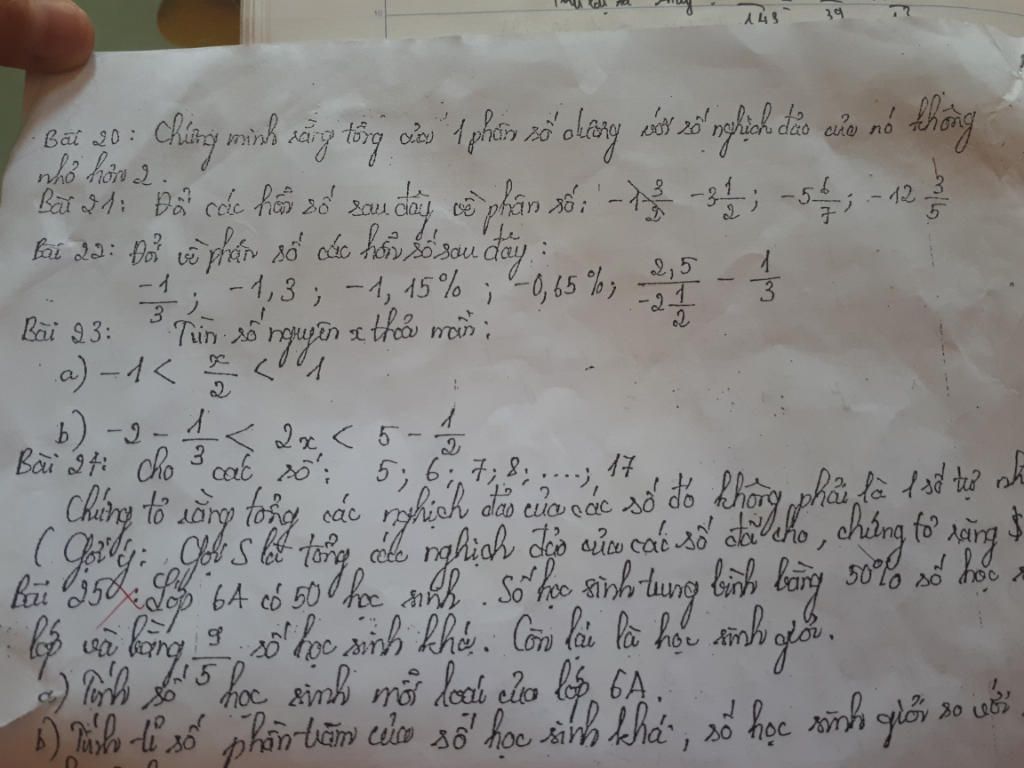 143 39
Bài 20: Chứng minh rằng tổng của 1 phân số dương với số nghịch đảo của nó không
nhỏ hơn 2.
Bài 21: Đổi các hỗn số sau đây về phân số: -1 3/2 -3 1/2; -5 6/7; -12 3/5
Bài 22: Đổi về phân số các hỗn số sau đây:
-1/3; -1,3; -1,15%; -0,65%; 2,5/(-2 1/2) - 1/3
Bài 23: Tìm số nguyên x thỏa mãn:
a) -1 < x/2 < 1
b) -2 - 1/3 < 2x < 5 - 1/2
Bài 24: Cho các số: 5; 6; 7; 8; ....; 17
Chứng tỏ rằng tổng các nghịch đảo của các số đó không phải là 1 số tự
(Gợi ý: Gọi S là tổng các nghịch đảo của các số đã cho, chứng tỏ rằng
Bài 25: Lớp 6A có 50 học sinh. Số học sinh tung bình bằng 50% số học
lớp và bằng 9/5 số học sinh khá. Còn lại là học sinh giỏi.
a) Tính số học sinh mỗi loại của lớp 6A.
b) Tính tỉ số phần trăm của số học sinh khá, số học sinh giỏi so với